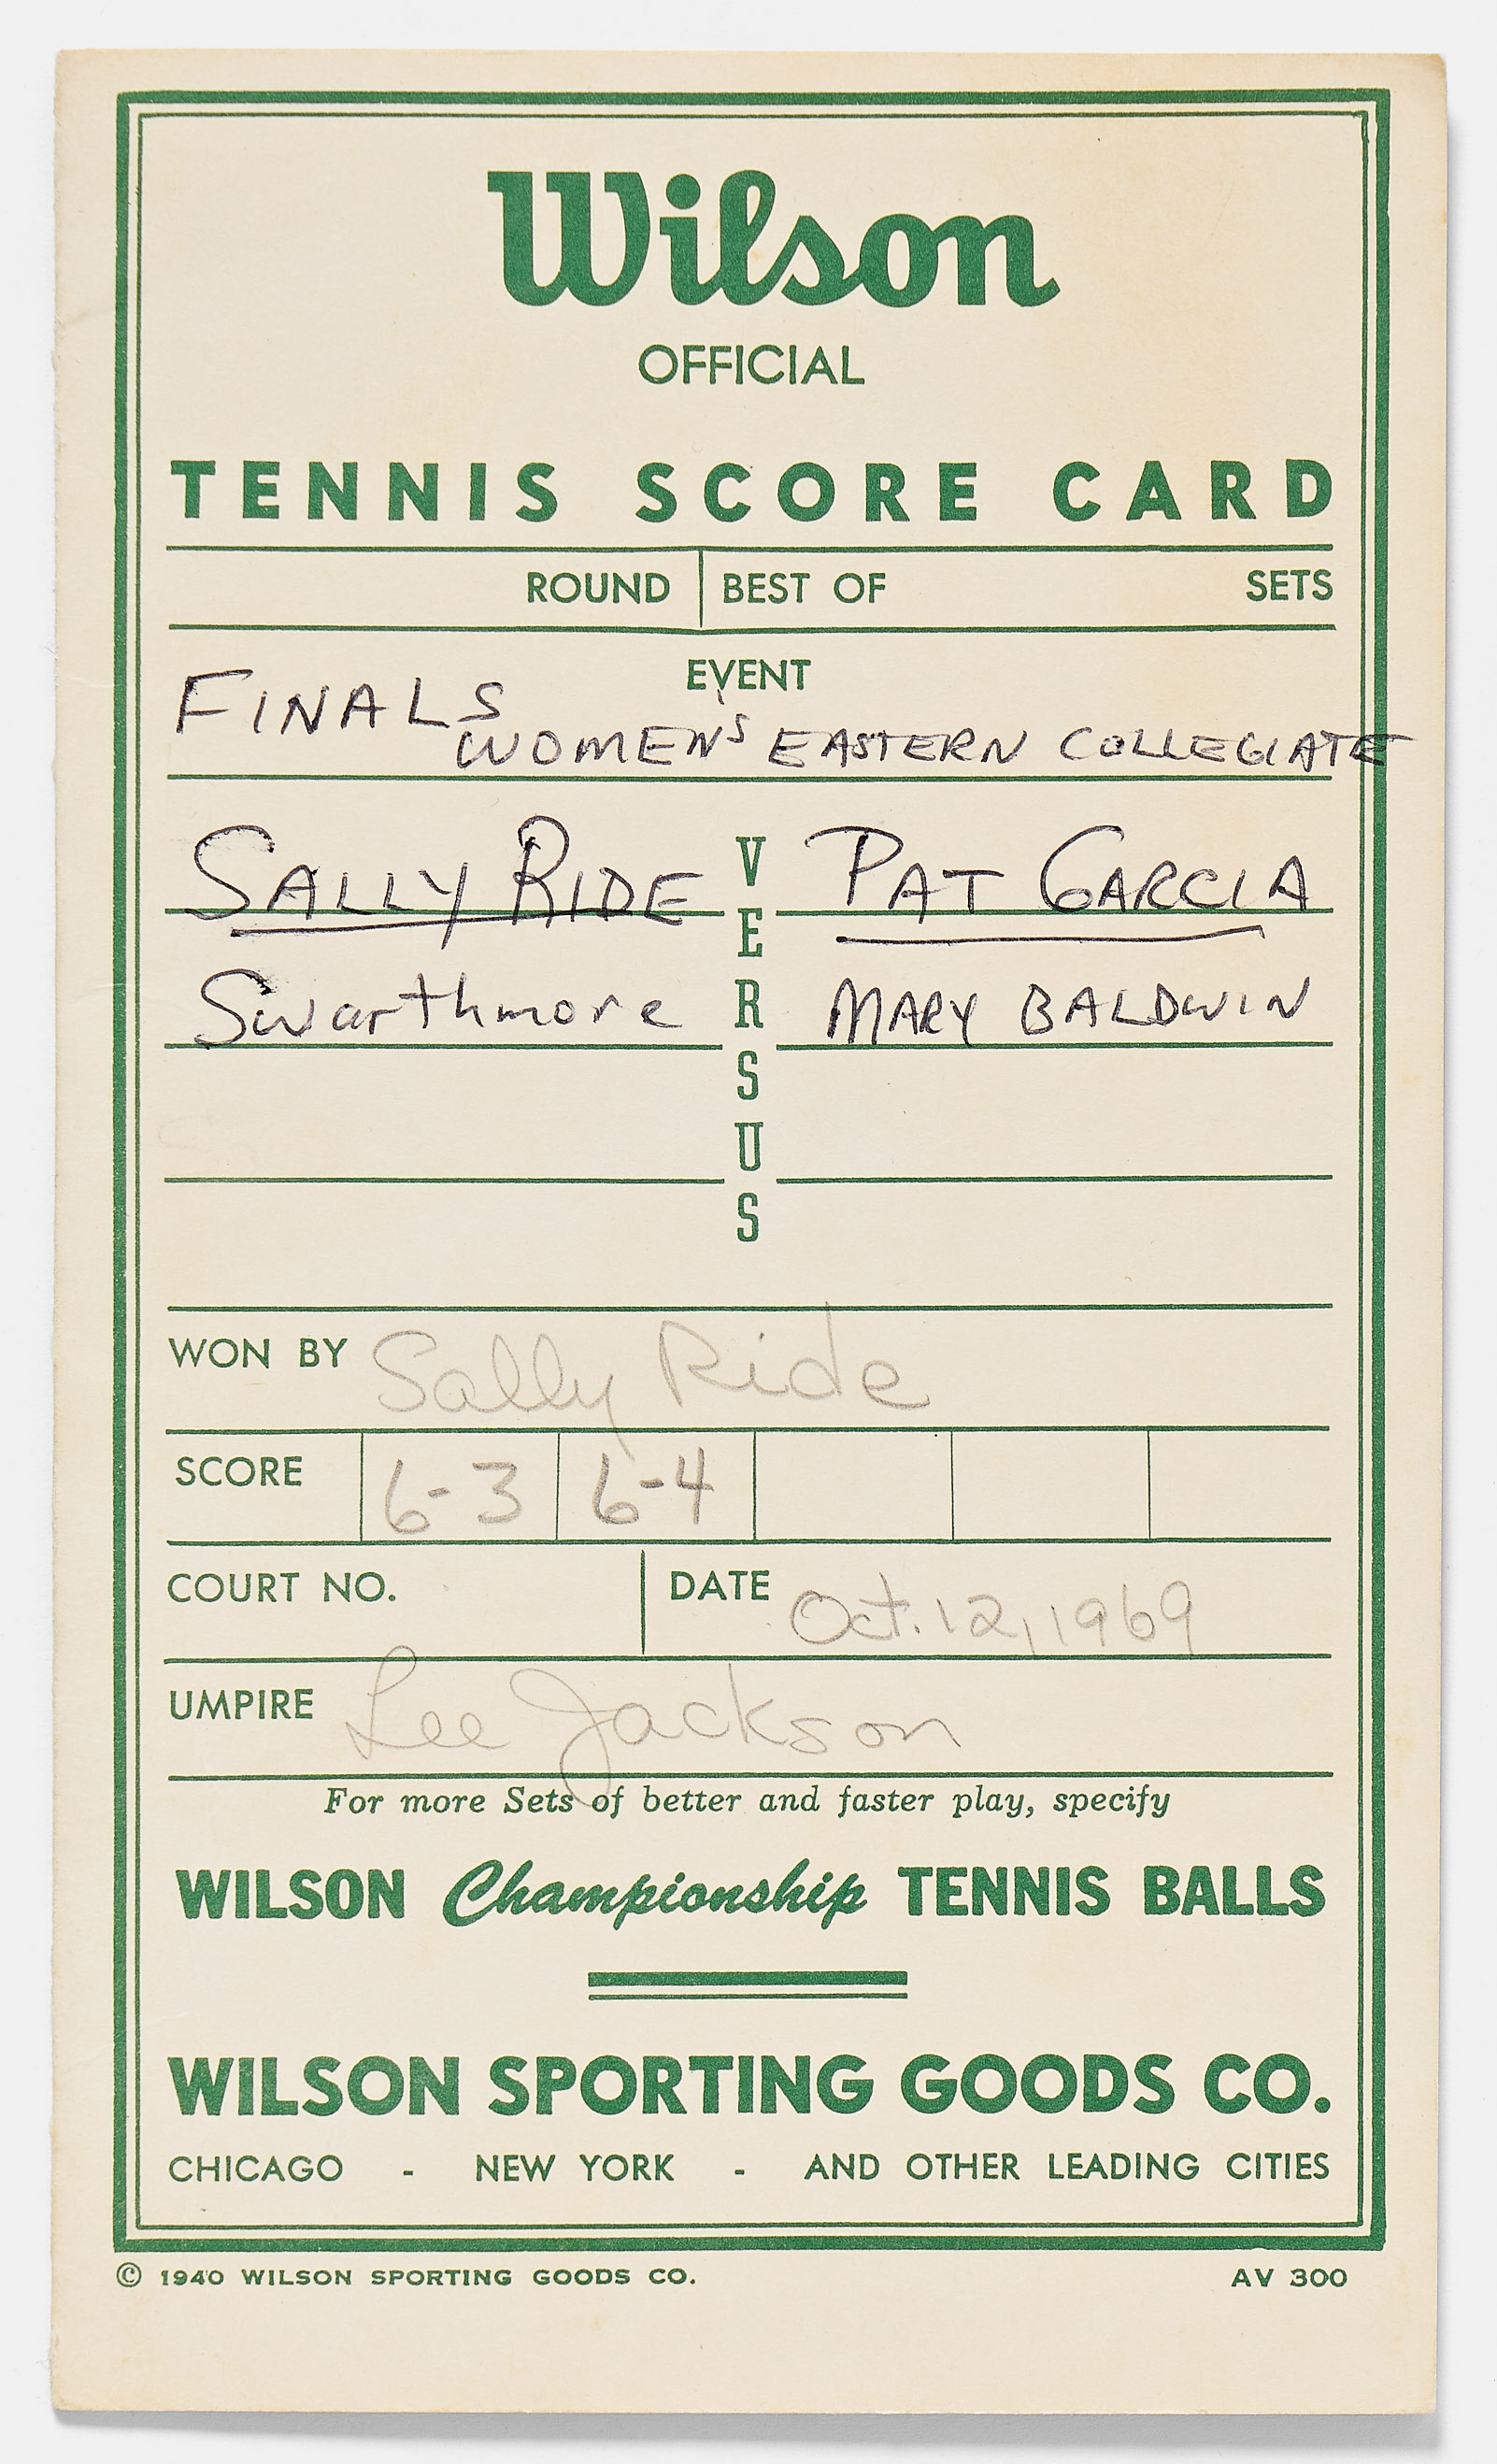 Wilson
OFFICIAL
TENNIS SCORE CARD
ROUND BEST OF SETS
EVENT
FINALS
WOMEN'S EASTERN COLLEGIATE
SALLY RIDE VERSUS PAT GARCIA
Swarthmore MARY BALDWIN
WON BY Sally Ride
SCORE 6-3 6-4
COURT NO. DATE Oct. 12, 1969
UMPIRE Lee Jackson
For more Sets of better and faster play, specify
WILSON Championship TENNIS BALLS
WILSON SPORTING GOODS CO.
CHICAGO - NEW YORK - AND OTHER LEADING CITIES
© 1940 WILSON SPORTING GOODS CO. AV 300